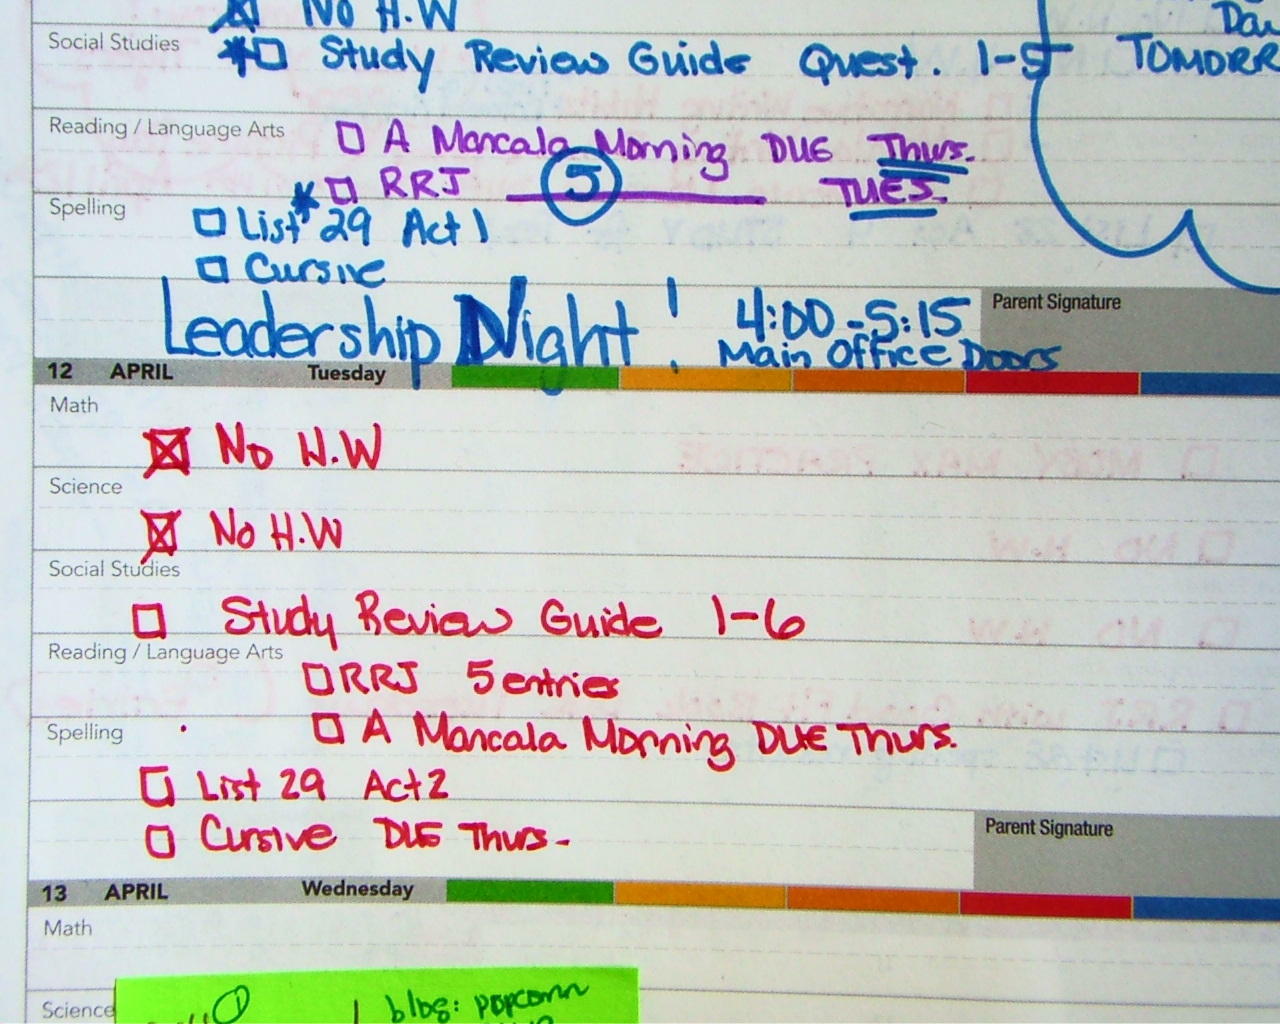 No H.W
Social Studies
Study Review Guide Quest. 1-5
TOMORR
Reading / Language Arts
A Mancala Morning DUE Thurs.
RRJ 5 TUES.
Spelling
List 29 Act 1
Cursive
Leadership Night! 4:00-5:15
Main Office Doors
Parent Signature
12 APRIL Tuesday
Math
No H.W
Science
No H.W
Social Studies
Study Review Guide 1-6
Reading / Language Arts
RRJ 5 entries
Spelling
A Mancala Morning DUE Thurs.
List 29 Act 2
Cursive DUE Thurs.
Parent Signature
13 APRIL Wednesday
Math
Science
blbg: popcorn